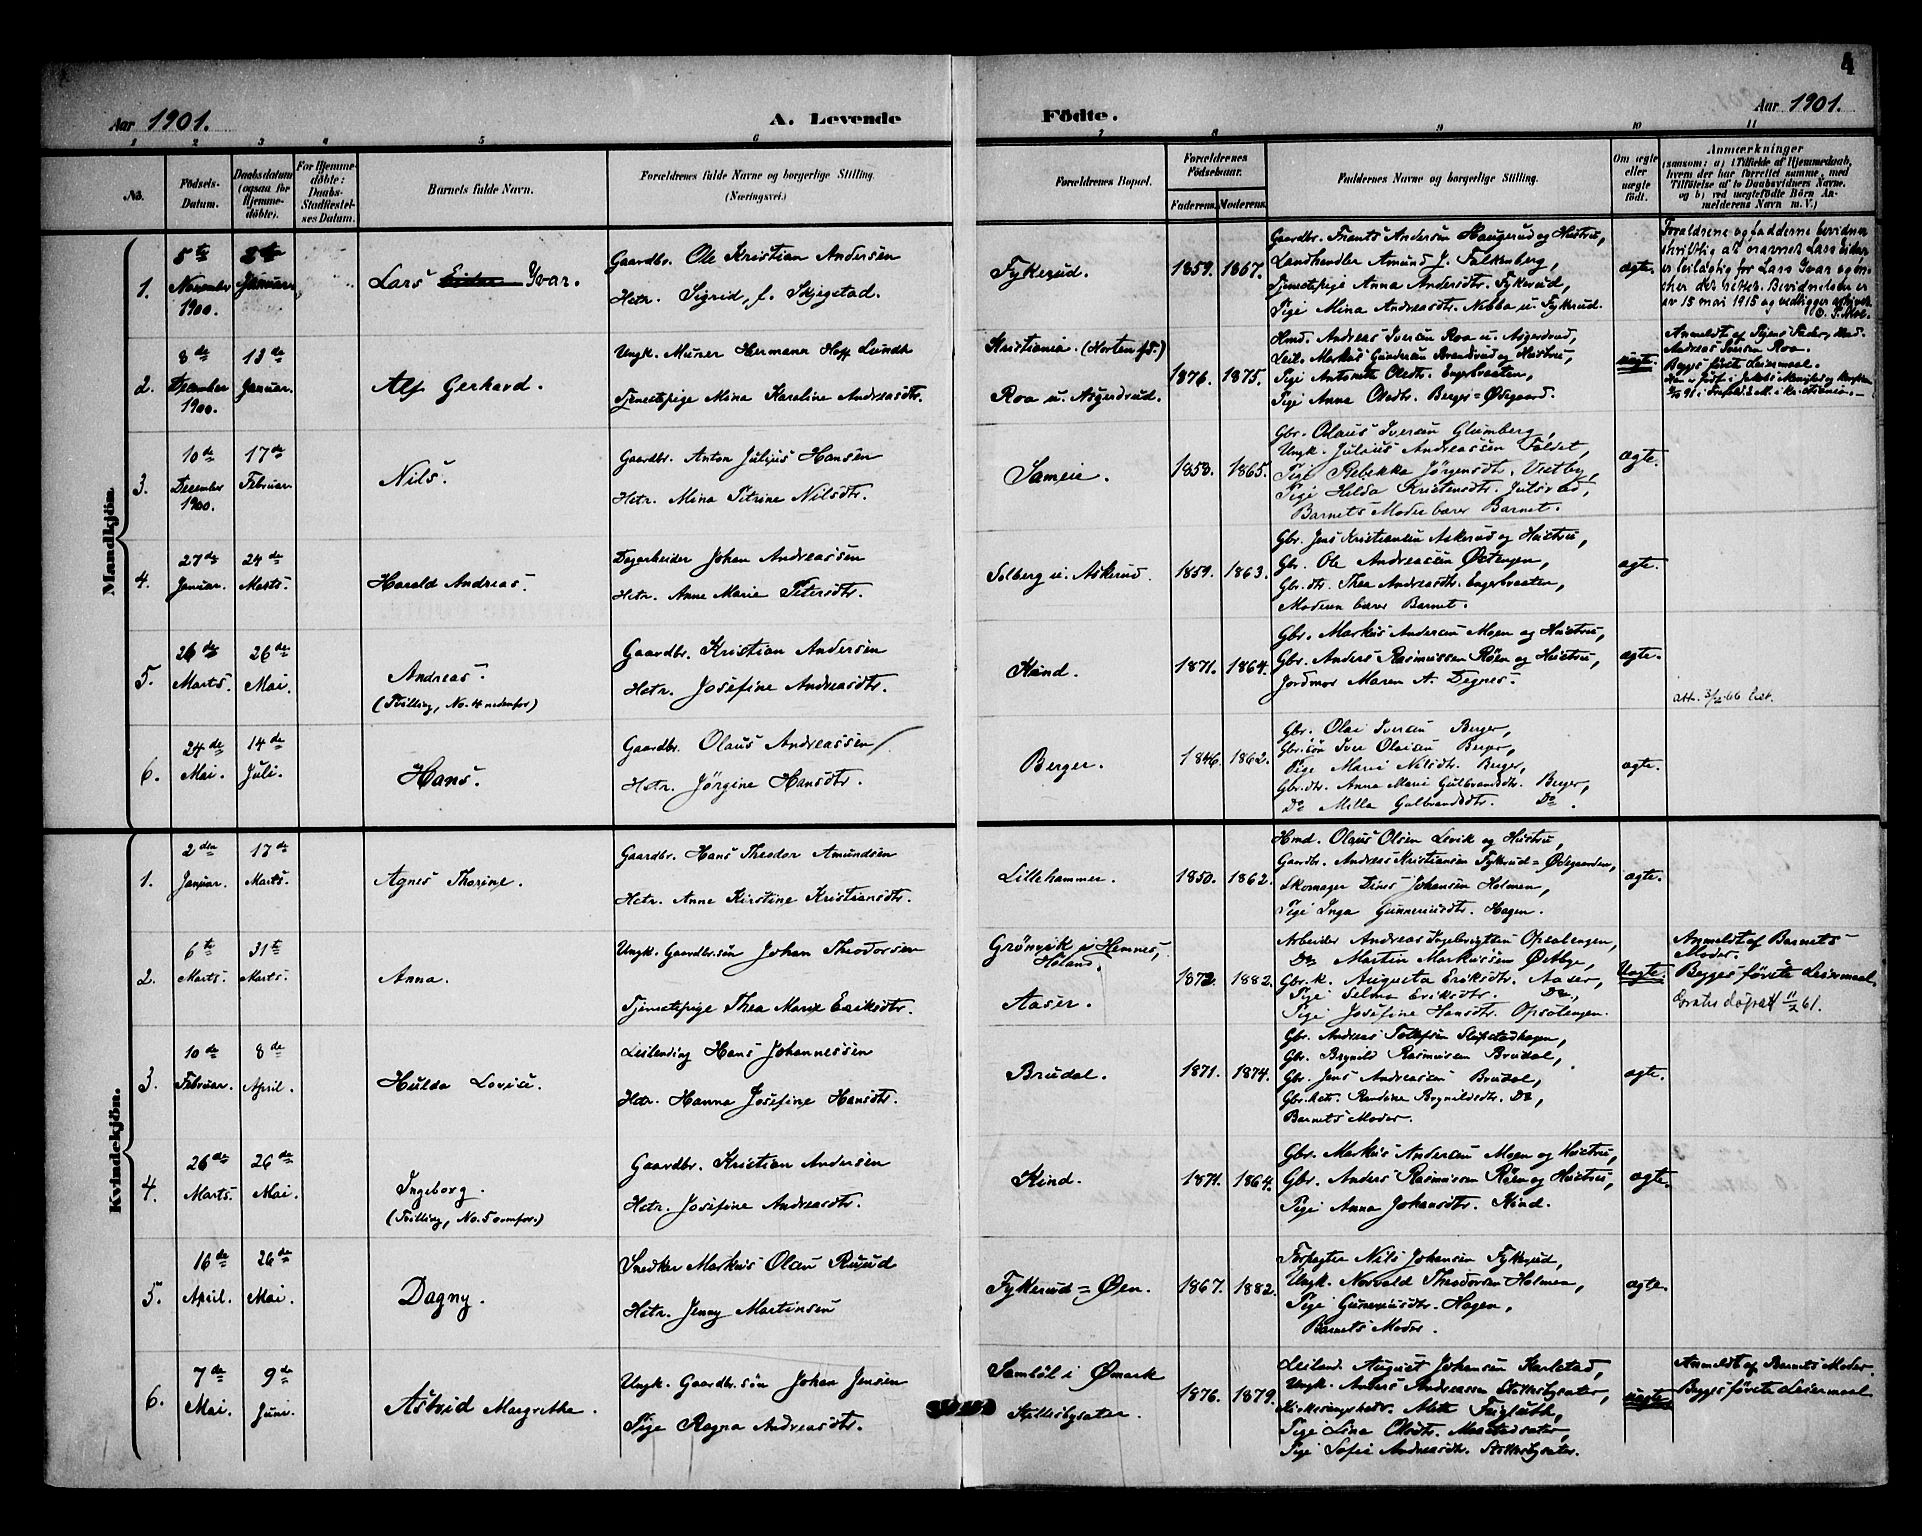 4
Aar 1901.
A. Levende
Födte.
Aar 1901.
1 2 3 4 5 6 7 8 9 10 11
No.
Födsels-Datum.
Daabsdatum (ogsaa for Hjemmedöbte).
For Hjemmedöbte: Daabs-Stadfæstelses Datum.
Barnets fulde Navn.
Forældrenes fulde Navne og borgerlige Stilling.
(Næringsvei.)
Forældrenes Bopæl.
Forældrenes Födselsaar.
Faderens. Moderens.
Faddernes Navne og borgerlige Stilling.
Om ægte eller uægte födt.
Anmærkninger
(saasom: a) i Tilfælde af Hjemmedaab, hvem der har forrettet samme, med Tilföielse af to Daabsvidners Navne, og b) ved uægtefödte Börn Anmelderens Navn m. V.)
Mandkjön.
1.
5te November 1900.
Januar
Lars Yvar.
Gaardbr. Ole Kristian Andersen
Hstr. Sigrid, f. Skjegstad.
Fykerud.
1859. 1867.
Gaardbr. Frants Andersen Haugerud og Hustru,
Landhandler Amund J. Falkenberg,
Tjenestepige Anna Andersdtr. Fykerud,
Pige Mina Andreasdtr. Nebba u. Fykerud.
ægte.
Forældrene og fadderne bevidner
skriftlig at navnet Lars Eidar
er feilagtig for Lars Yvar og øn-
sker det rettet. Bevidnelsen er
av 15 mai 1915 og vedligger arkivet.
2.
8de Desember 1900.
13de Januar.
Alf Gerhard.
Ungk. Murer Hermann Hoff Lundh
Tjenestepige Mina Karoline Andreasdtr.
Kristiania. (Horten fd.)
Roa u. Asgerdrud.
1876. 1875.
Hmd. Andreas Iversen Roa u. Asgerdrud,
Leil. Markus Gundersen Brandsrud og Hustru,
Pige Antonette Olsdtr. Engerbraaten,
Pige Anna Olsdtr. Berger-Ødegaard.
uægte.
Anmeldt af Pigens Fader, Hmd.
Andreas Iversen Roa.
Begges første Leiermaal.
3.
10de Desember 1900.
17de Februar.
Nils.
Gaardbr. Anton Julius Hansen
Hstr. Mina Petrine Nilsdtr.
Sameie.
1853. 1865.
Gbr. Olaus Iversen Glumberg,
Ungk. Julius Andreassen Faldet,
Pige Rebekka Jørgensdtr. Vestby,
Pige Hilda Kristensdtr. Julsrud,
Barnets Moder bærer Barnet.
ægte.
4.
27de Januar.
24de Marts.
Harald Andreas.
Dagarbeider Johan Andreassen
Hstr. Anne Marie Petersdtr.
Solberg u. Askerud.
1859. 1863.
Gbr. Jens Kristiansen Askerud og Hustru,
Gbr. Ole Andreassen Østengen,
Gbr.dtr. Thea Andreasdtr. Engerbraaten,
Moderen bærer Barnet.
ægte.
5.
26de Marts.
26de Mai.
Andreas.
(Tvilling, No. 4 nedenfor)
Gaardbr. Kristian Andersen
Hstr. Josefine Andreasdtr.
Kind.
1871. 1864.
Gbr. Markus Andersen Moen og Hustru,
Gbr. Anders Rasmussen Röen og Hustru,
Jordmor Maren A. Degnes.
ægte.
6.
24de Mai.
14de Juli.
Hans.
Gaardbr. Olaus Andreassen
Hstr. Jørgine Hansdtr.
Berger.
1846. 1862.
Gbr. Olai Iversen Berger,
Gbr.sön Iver Olaisen Berger,
Pige Marie Nilsdtr. Berger,
Gbr.dtr. Anna Marie Gulbrandsdtr. Berger,
Do Milla Gulbrandsdtr. Do.
ægte.
Kvindekjön.
1.
2den Januar.
17de Marts.
Agnes Thorine.
Gaardbr. Hans Theodor Amundsen
Hstr. Anne Kirstine Kristiansdtr.
Lillehammer.
1850. 1862.
Hmd. Olaus Olsen Levik og Hustru,
Gaardbr. Andreas Kristiansen Fykerud-Ødegaarden,
Skomager Dines Johansen Holmen,
Pige Inga Gunneriusdtr. Hagen.
ægte.
2.
6te Marts.
31te Marts.
Anna.
Ungk. Gaardbr.sön Johan Theodorsen
Tjenestepige Thea Marie Eriksdtr.
Grönvik i Hemnes, Höland.
Aaser.
1872. 1882.
Arbeider Andreas Ingebrigtsen Opsalengen,
Do Martin Markussen Østbye,
Gbr.k. Augusta Eriksdtr. Aaser,
Pige Selma Eriksdtr. Do,
Pige Josefine Hansdtr. Opsalengen.
Uægte.
Anmeldt af Barnets
Moder.
Begges første Leiermaal.
Gratis dåpsatt 11/2 61.
3.
10de Februar.
8de April.
Hulda Lovise.
Leilending Hans Johannessen
Hstr. Hanna Josefine Hansdtr.
Brudal.
1871. 1874.
Gbr. Andreas Tollefsen Slupstadhagen,
Gbr. Brynild Rasmussen Brudal,
Gbr. Jens Andreassen Brudal,
Gbr.hstr. Randine Brynildsdtr. Do,
Barnets Moder.
ægte.
4.
26de Marts.
26de Mai.
Ingeborg.
(Tvilling, No. 5 ovenfor.)
Gaardbr. Kristian Andersen
Hstr. Josefine Andreasdtr.
Kind.
1871. 1864.
Gbr. Markus Andersen Moen og Hustru,
Gbr. Anders Rasmussen Röen og Hustru,
Pige Anna Johansdtr. Kind.
ægte.
5.
16de April.
26de Mai.
Dagny.
Snedker Markus Olsen Ruud
Hstr. Jenny Martinsen
Fykerud-Øen.
1867. 1882.
Forpagter Nils Johansen Fykerud,
Ungk. Norvald Theodorsen Holmen,
Pige Gunneriusdtr. Hagen,
Barnets Moder.
ægte.
6.
7de Mai.
9de Juni.
Astrid Margrethe.
Ungk. Gaardbr.sön Johan Jensen
Pige Ragna Andreasdtr.
Samløl i Ømark
Stikkesbysæter.
1876. 1879.
Leilend. August Johansen Karlstad,
Ungk. Anders Andreassen
Pige Lina Olsdtr.
Pige Sofie Andreasdtr.
uægte.
Anmeldt af Barnets Moder.
Begges første Leiermaal.